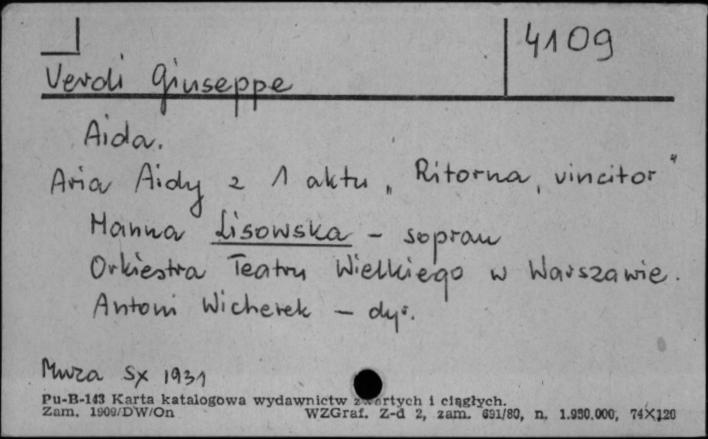 4109
Verdi Giuseppe
Aida.
Aria Aidy z 1 aktu „Ritorna, vincitor"
Hanna Lisowska - sopran
Orkiestra Teatru Wielkiego w Warszawie.
Antoni Wicherek - dyr.
Muza SX 1931
Pu-B-143 Karta katalogowa wydawnictw zwartych i ciągłych.
Zam. 1909/DW/On WZGraf. Z-d 2, zam. 691/80, n. 1.980.000, 74X120